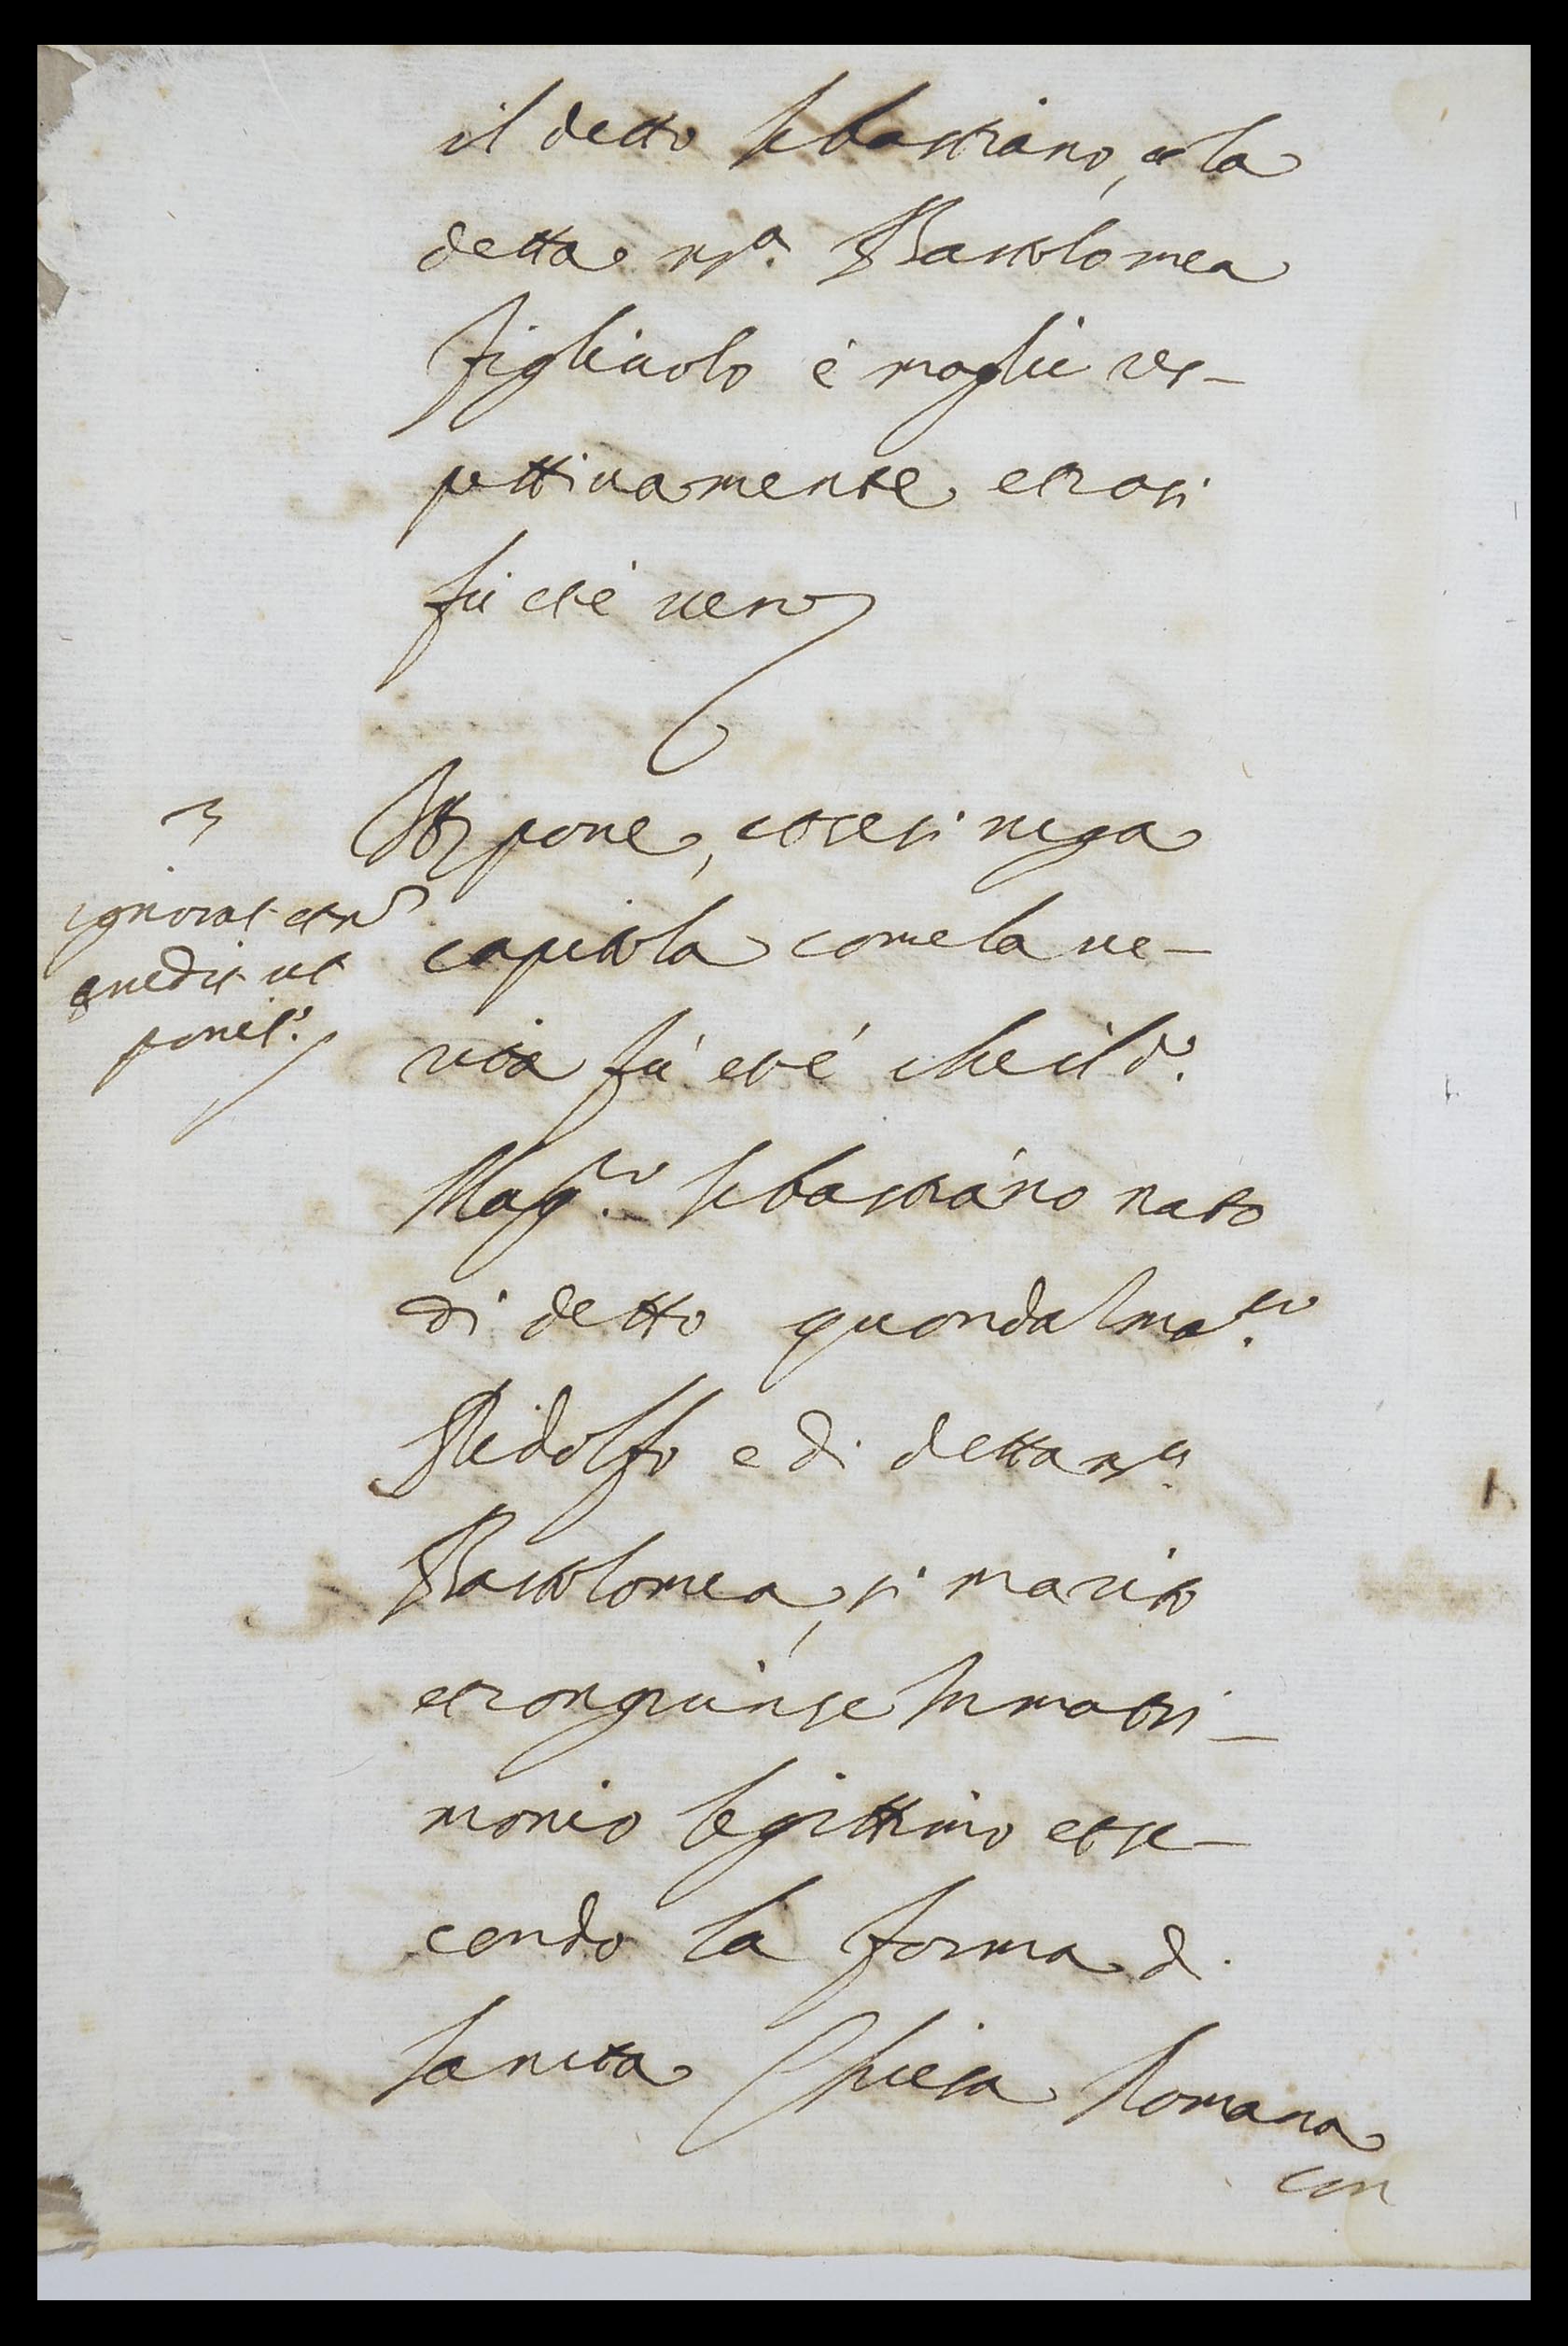 il detto Sebastiano, e la
detta m.ª Bartolomea
figliuolo è moglie res-
pettiuamente et così
fù et è uero
3
It pone, et se si nega
ignorat et n
credit ut
ponit.r
capitola come la ue-
rità fù et è che il d.º
Mag.co Sebastiano nato
di detto quonda ma.co
Ridolfo e di detta m.ª
Bartolomea, si maritò
et congiunse In matri-
monio legittimo et se-
condo la forma di
Santa Chiesa Romana
con